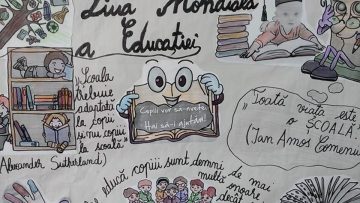 Ziua Mondială
a Educației
„Școala
trebuie
adaptată
la copii
și nu copiii
la școală”
(Alexander Sutherland)
Copiii vor să-nvețe
Hai să-i ajutăm!
„Toată viața este
o ȘCOALĂ”
(Jan Amos Comenius
educă copiii sunt demni de mai
multă onoare
decât